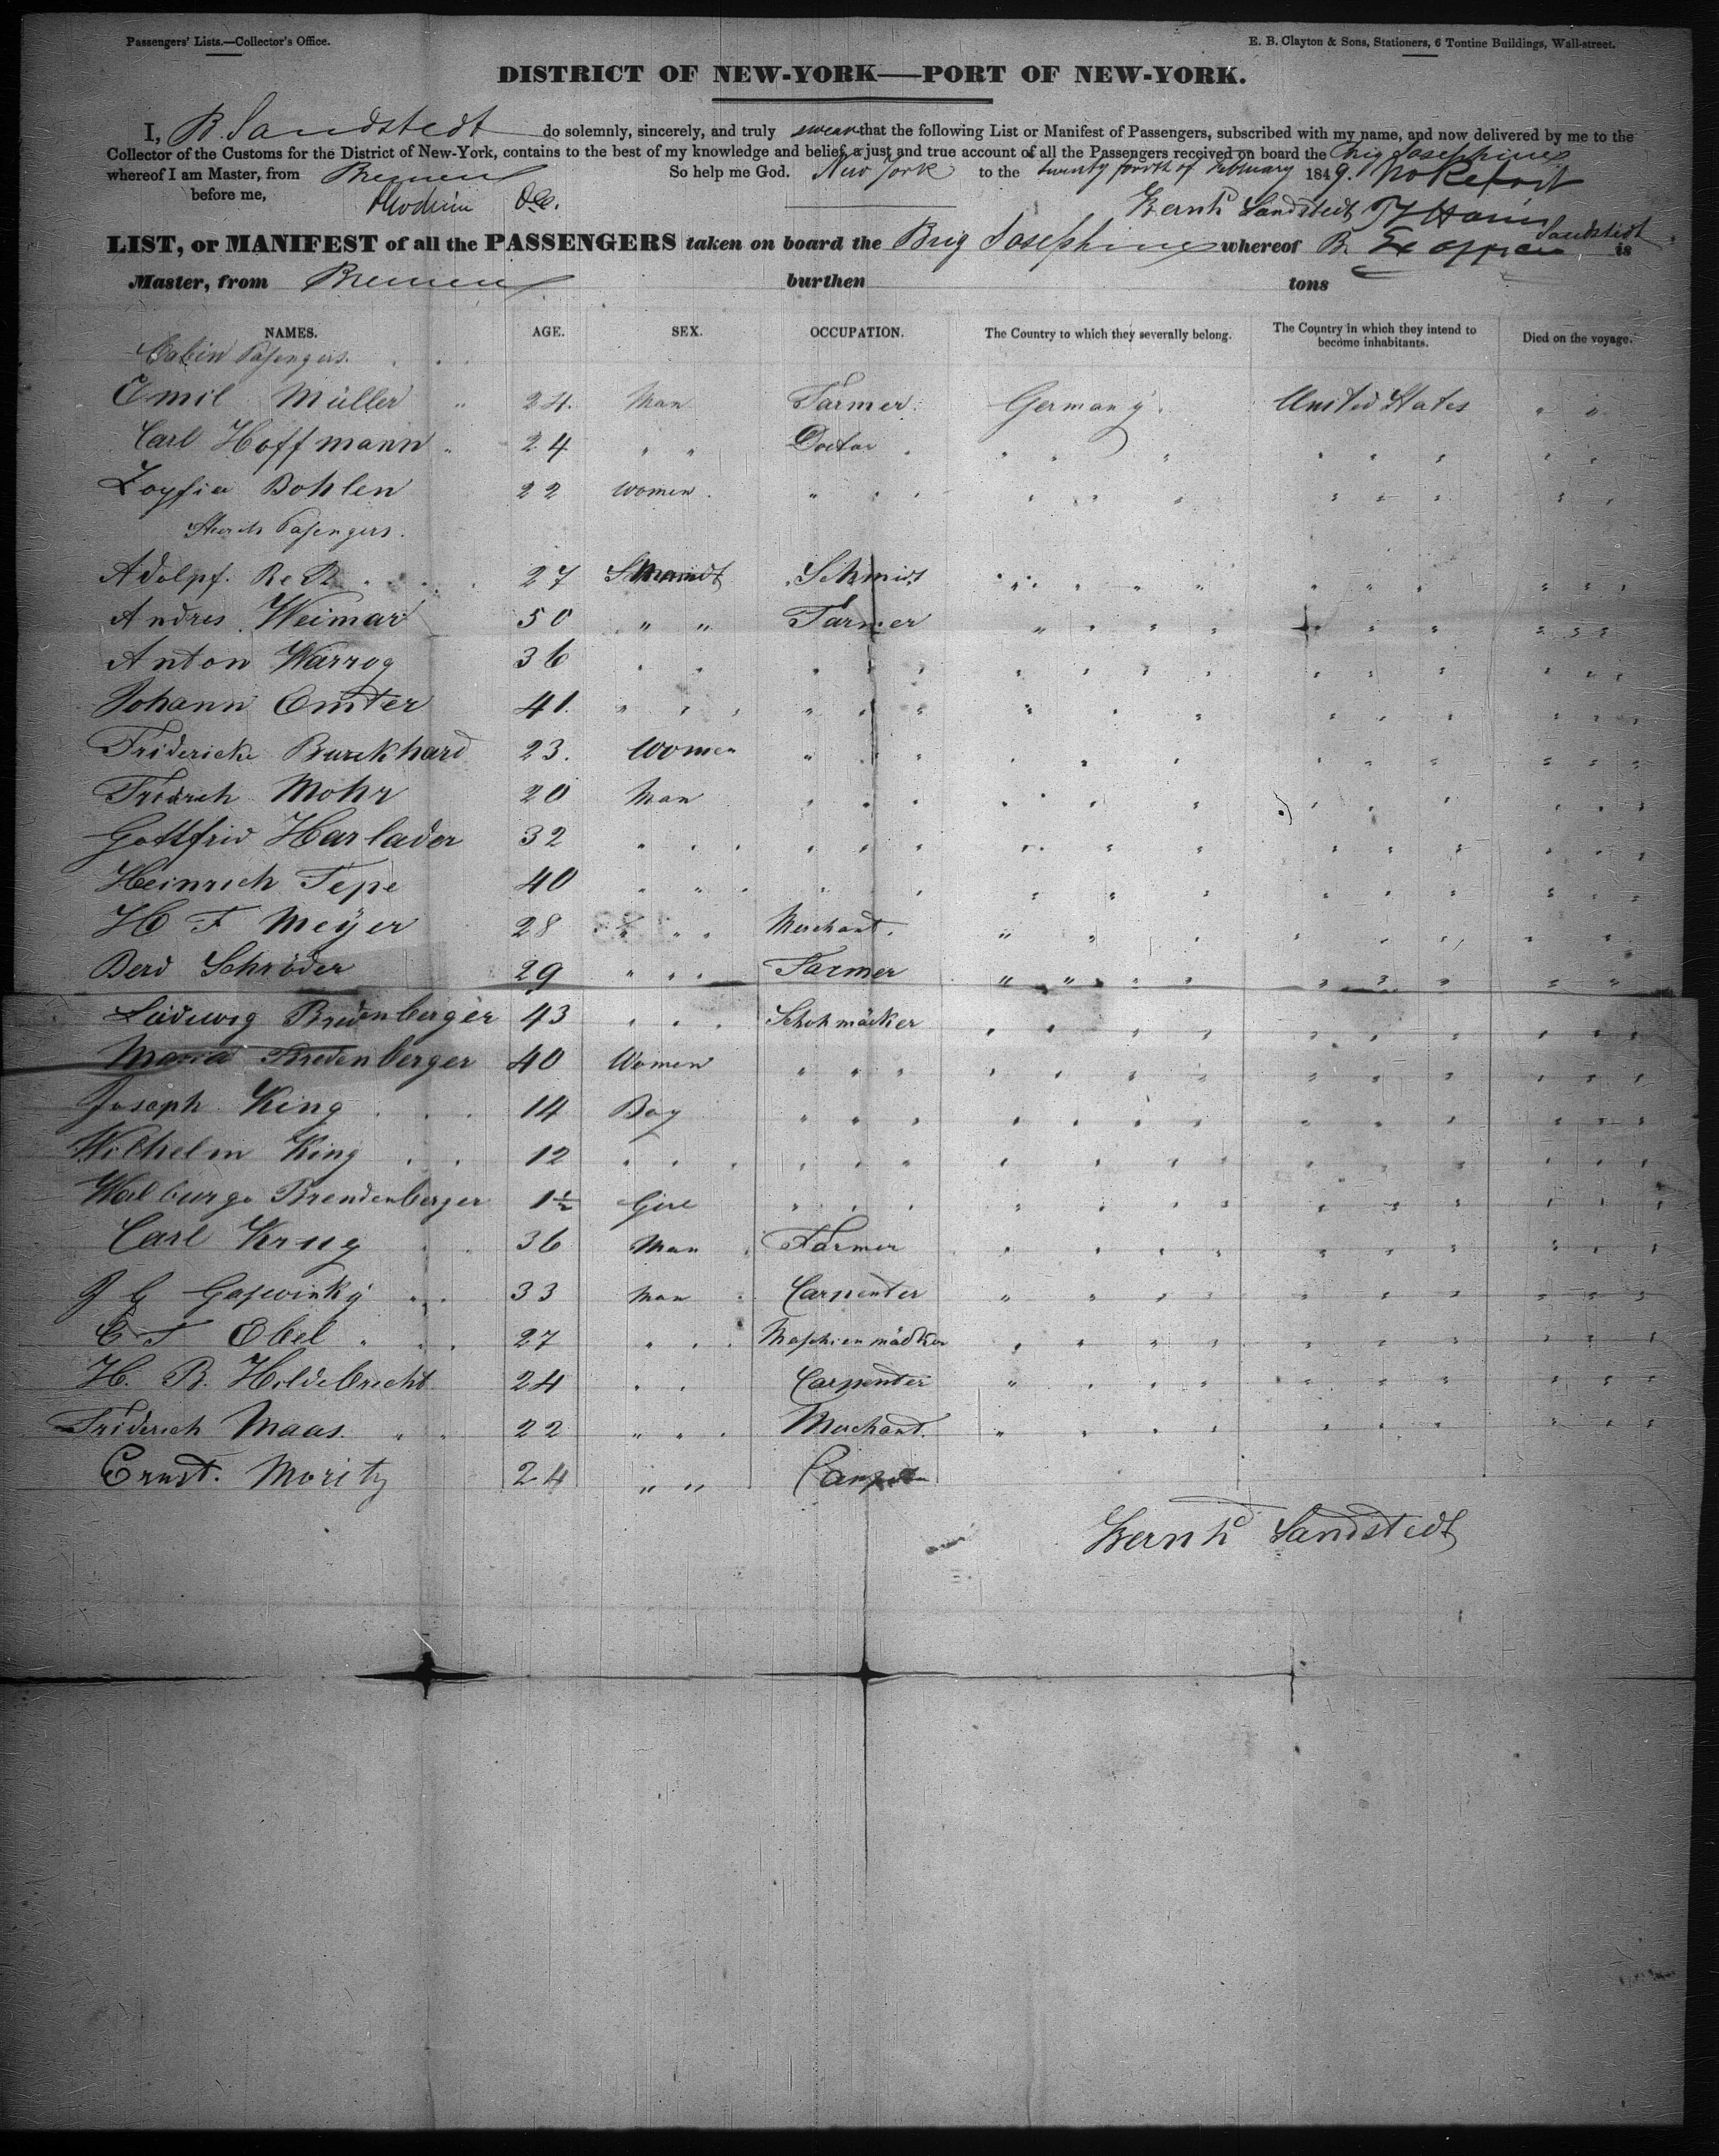 Passengers' Lists.—Collector's Office.
E. B. Clayton & Sons, Stationers, 6 Tontine Buildings, Wall-street.
DISTRICT OF NEW-YORK—PORT OF NEW-YORK.
I, B. Sandstedt do solemnly, sincerely, and truly swear that the following List or Manifest of Passengers, subscribed with my name, and now delivered by me to the
Collector of the Customs for the District of New-York, contains to the best of my knowledge and belief, a just and true account of all the Passengers received on board the Brig Josephine
whereof I am Master, from Bremen So help me God. New York to the twenty fourth of February 1849.
before me, Bernhd Sandstedt
LIST, or MANIFEST of all the PASSENGERS taken on board the Brig Josephine whereof B. Sandstedt is
Master, from Bremen burthen tons
NAMES. AGE. SEX. OCCUPATION. The Country to which they severally belong. The Country in which they intend to become inhabitants. Died on the voyage.
Cabin Pasengers.
Emil Müller " 24. Man Farmer. Germany. United States " "
Carl Hoffmann " 24 " " Doctor " " " " " " " "
Bohlen 22 Women. " " " " " " " " " " "
Pasengers.
Adolpf. 27 Schmidt " " " " " " " " " "
Andres Weimar 50 " " Farmer " " " " " " " " "
Anton Warrog 36 " " " " " " " " " " " " " " "
Johann Emter 41. " " " " " " " " " " " " " " "
Fridericke Burckhard 23. Women " " " " " " " " " " " "
Fridrich Mohr 20 Man " " " " " " " " " " " "
Gottfrid Harlader 32 " " " " " " " " " " " " " " "
Heinrich Tepe 40 " " " " " " " " " " " " " "
H F Meÿer 28 " " " Merchant. " " " " " " " "
Berd Schröder 29 " " " Farmer " " " " " " " " "
Ludewig Bredenberger 43 " " " Schohmäcker " " " " " " " " " "
Maria Bredenberger 40 Women " " " " " " " " " " " " "
Joseph King 14 Boy " " " " " " " " " " " " "
Wilhelm King 12 " " " " " " " " " " " " " " " "
Walburga Brendenberger 1½ Girl " " " " " " " " " " " " "
Carl Krug 36 Man Farmer " " " " " " " " " "
J G 33 Man Carpenter " " " " " " " " " "
C F Ebel 27 " " " Maschienmäcker " " " " " " " " " "
H. B. Hildebrecht 24 " " Carpenter " " " " " " " " " "
Friderich Maas. " " 22 " " " Merchant. " " " " " " " " " "
Ernst. Moritz 24 " "
Bernhd Sandstedt